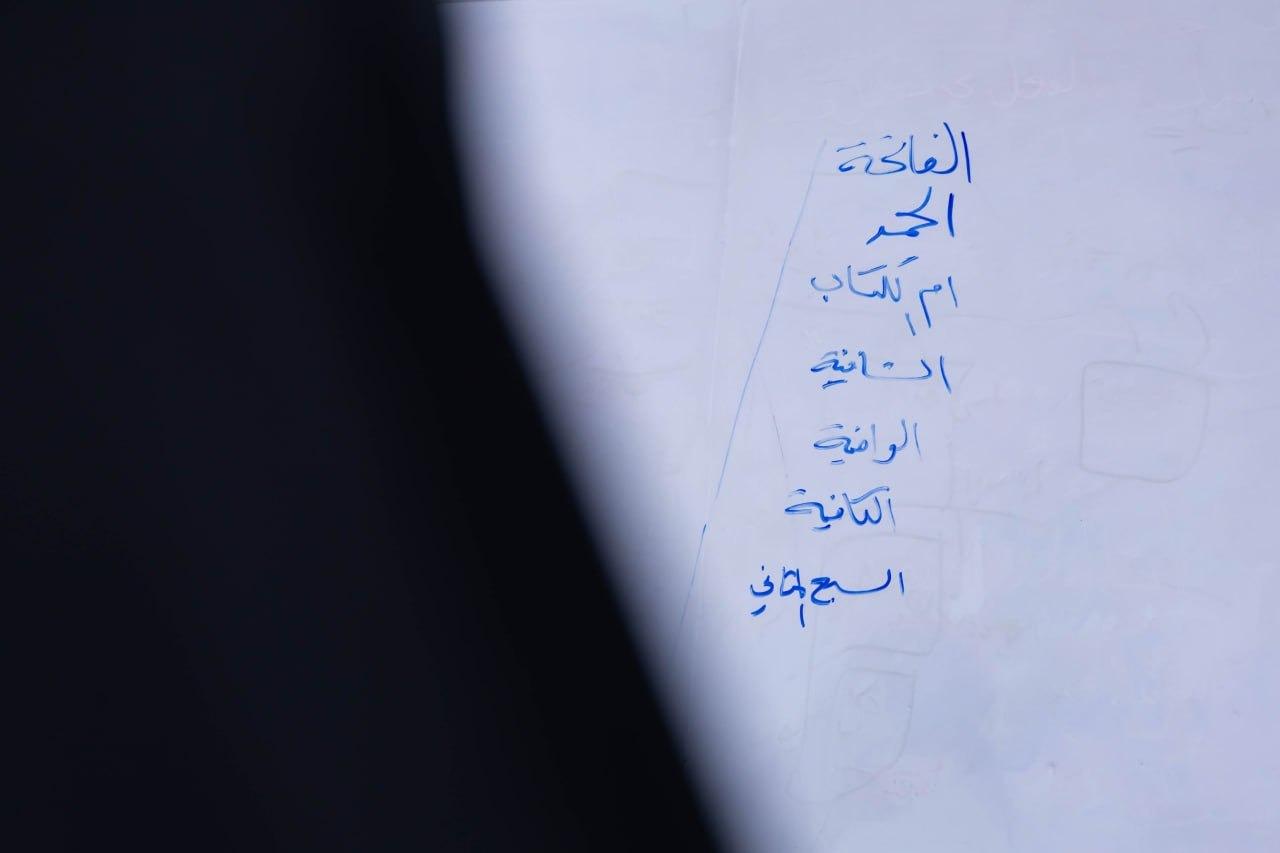 الفاتحة
الحمد
ام الكتاب
الشافية
الوافية
الكافية
السبع المثاني